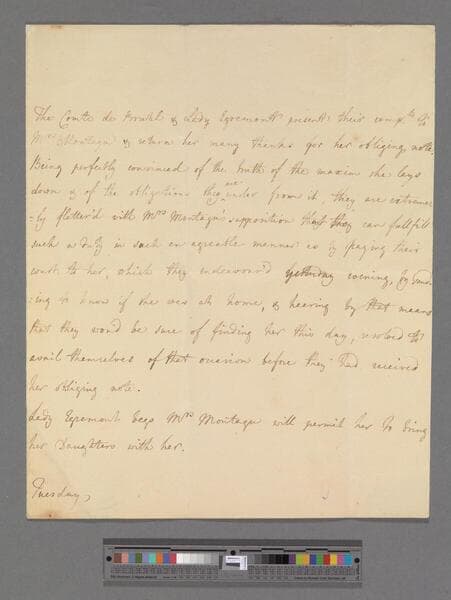 The Comte de Bruhl & Lady Egremont present their comp.ts to
Mrs Montagu & return her many thanks for her obliging note.
Being perfectly convinced of the truth of the maxim she lays
down & of the obligations they are under from it, they are extreme
=ly flatter'd with Mrs Montagu's supposition that they can fullfill
such a duty in such an agreable manner as by paying their
court to her, which they endeavour'd yesterday evening, by send
=ing to know if she was at home, & hearing by that means
that they wou'd be sure of finding her this day, resolved to
avail themselves of that occasion before they had received
her obliging note.
Lady Egremont begs Mrs Montagu will permit her to bring
her Daughters with her.
Tuesday,